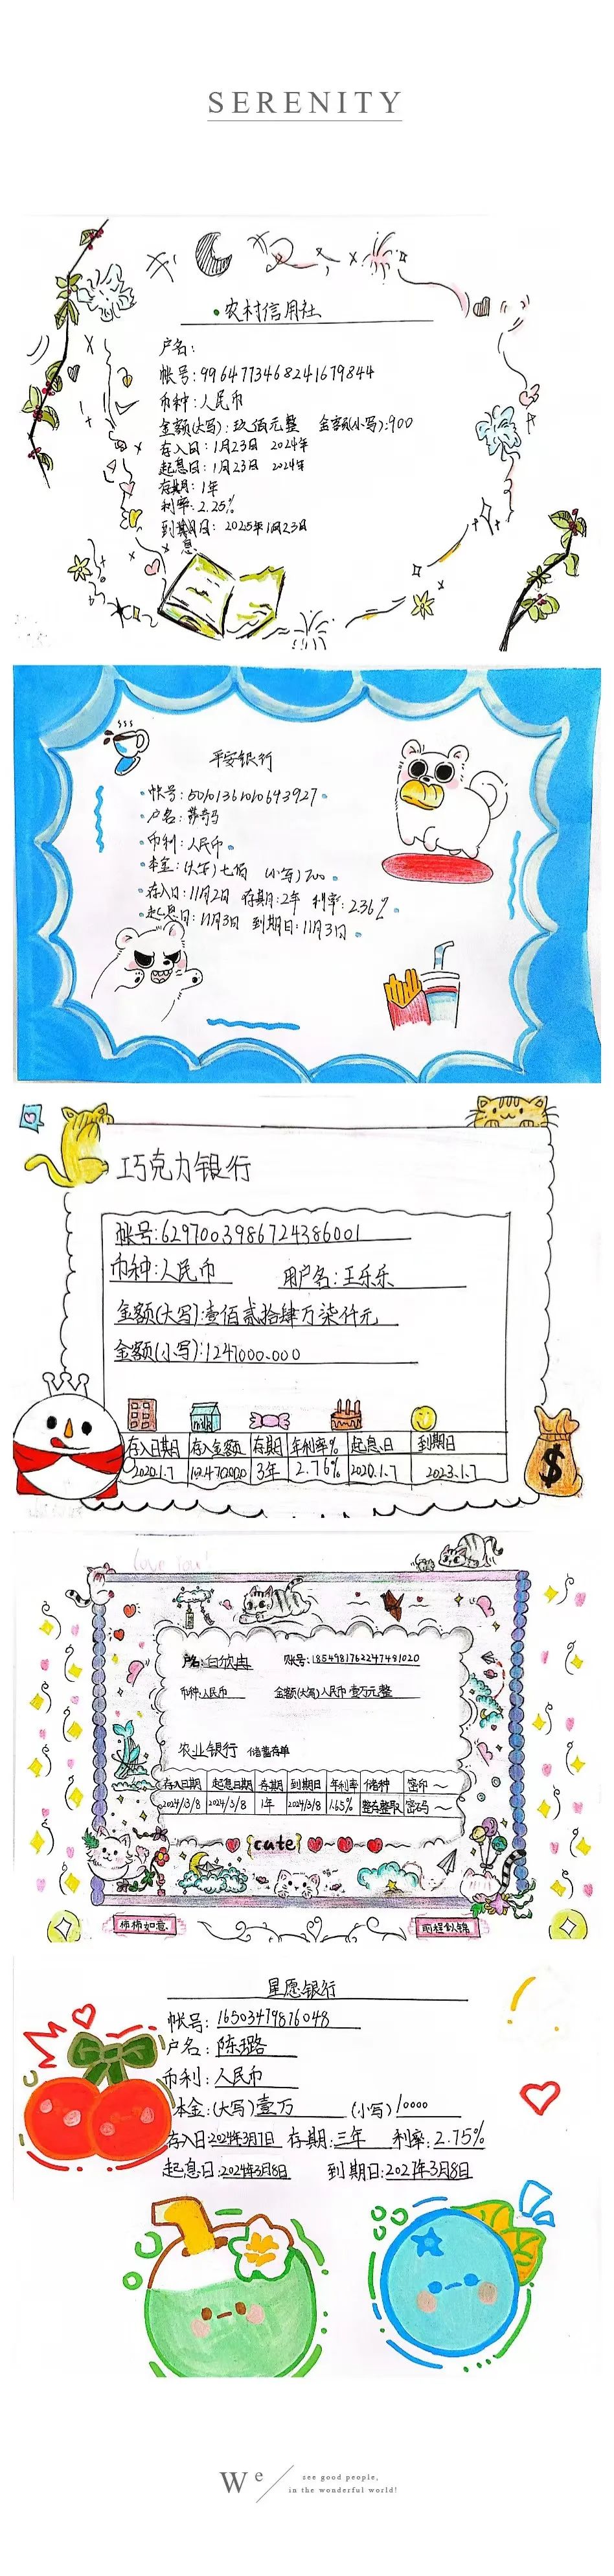 SERENITY
农村信用社
户名:
帐号:9964773468241679844
币种:人民币
金额(大写):玖佰元整 金额(小写):900
存入日:1月23日 2024年
起息日:1月23日 2024年
存期:1年
利率:2.25%
到期日: 2025年1月23日
息
平安银行
帐号:50101361010643927
户名:
币利:人民币
本金:(大写)七佰 (小写)700
存入日:11月2日 存期:2年 利率:2.36%
起息日:11月3日 到期日:11月3日
巧克力银行
帐号:6297003986724386001
币种:人民币 用户名:王乐乐
金额(大写):壹佰贰拾肆万柒仟元
金额(小写):1247000.000
milk
存入日期 存入金额 存期 年利率% 起息日 到期日
2020.1.7 3年 2.76% 2020.1.7 2023.1.7
love you!
户名:白欣冉 账号:1854981762247491020
币种:人民币 金额(大写)人民币 壹万元整
农业银行 储蓄存单
存入日期 起息日期 存期 到期日 年利率 储种 密印
2024/3/8 2024/3/8 1年 2024/3/8 1.65% 整存整取 密码
cute
柿柿如意 前程似锦
星愿银行
帐号:16503479876048
户名:陈璐
币利:人民币
本金:(大写)壹万 (小写)10000
存入日:2024年3月7日 存期:三年 利率:2.75%
起息日:2024年3月8日 到期日:2027年3月8日
We
see good people,
in the wonderful world!